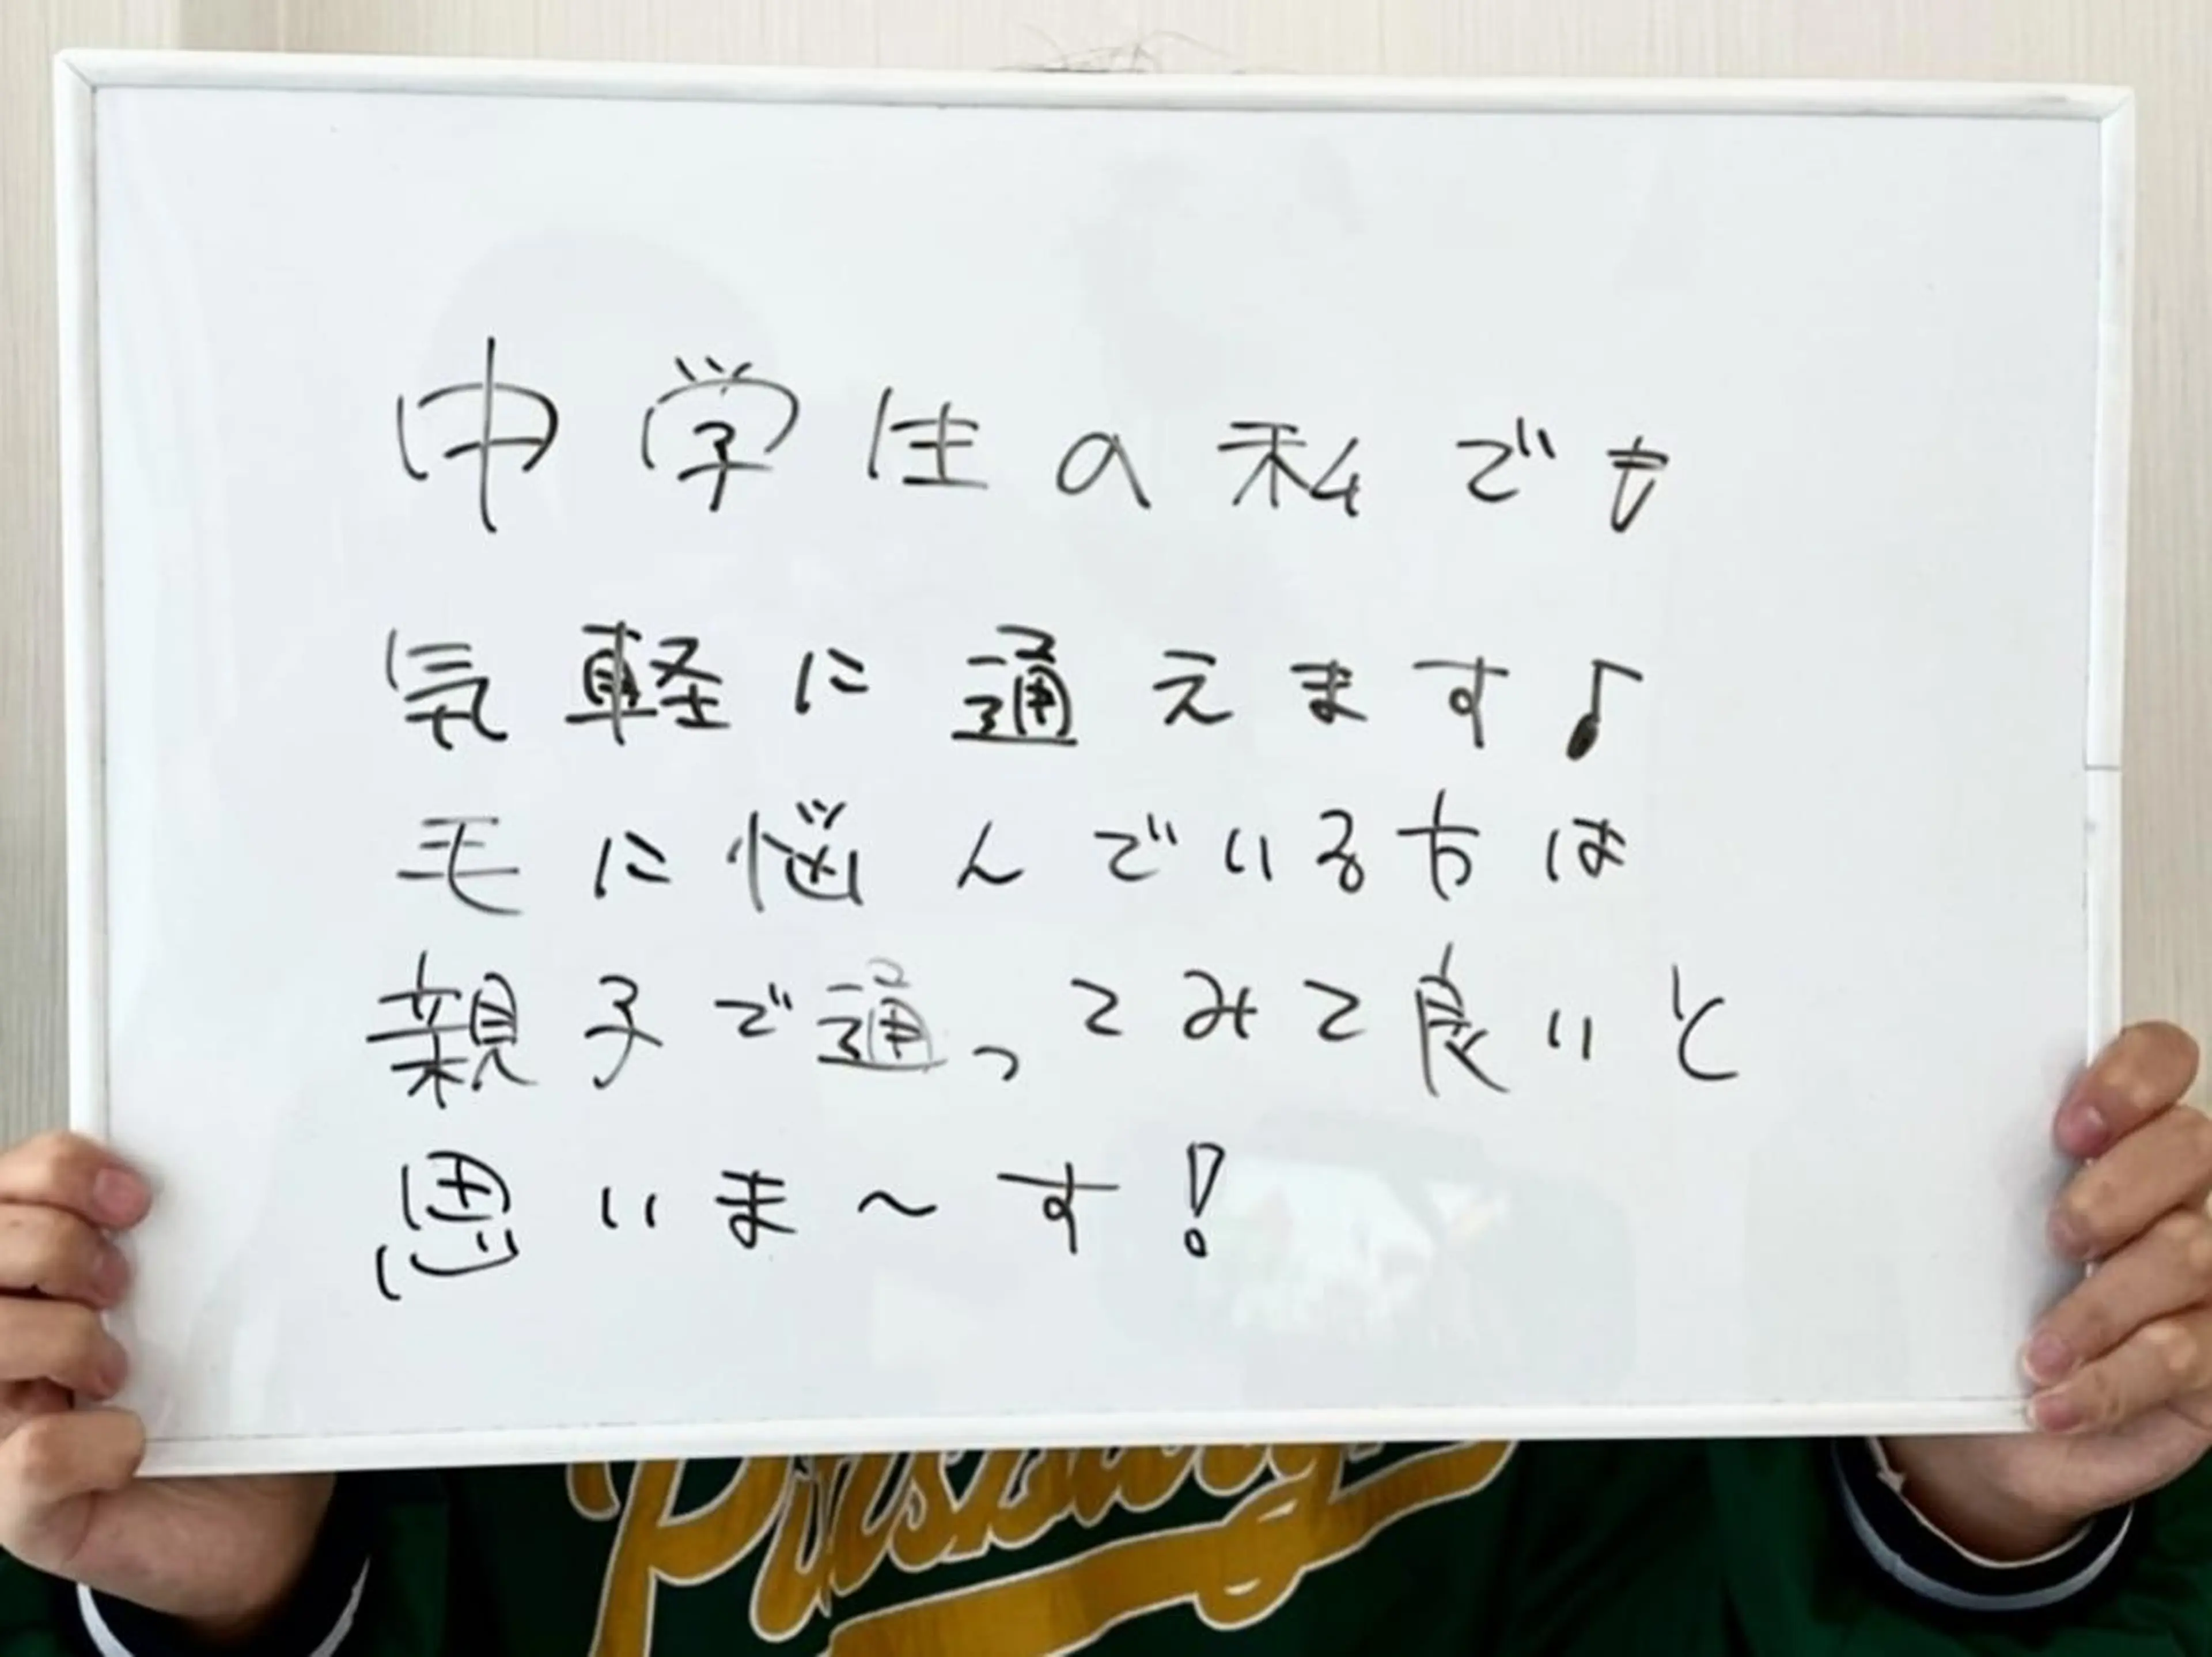 中学生の私でも
気軽に通えます♪
毛に悩んでいる方は
親子で通ってみて良いと
思いま～す！